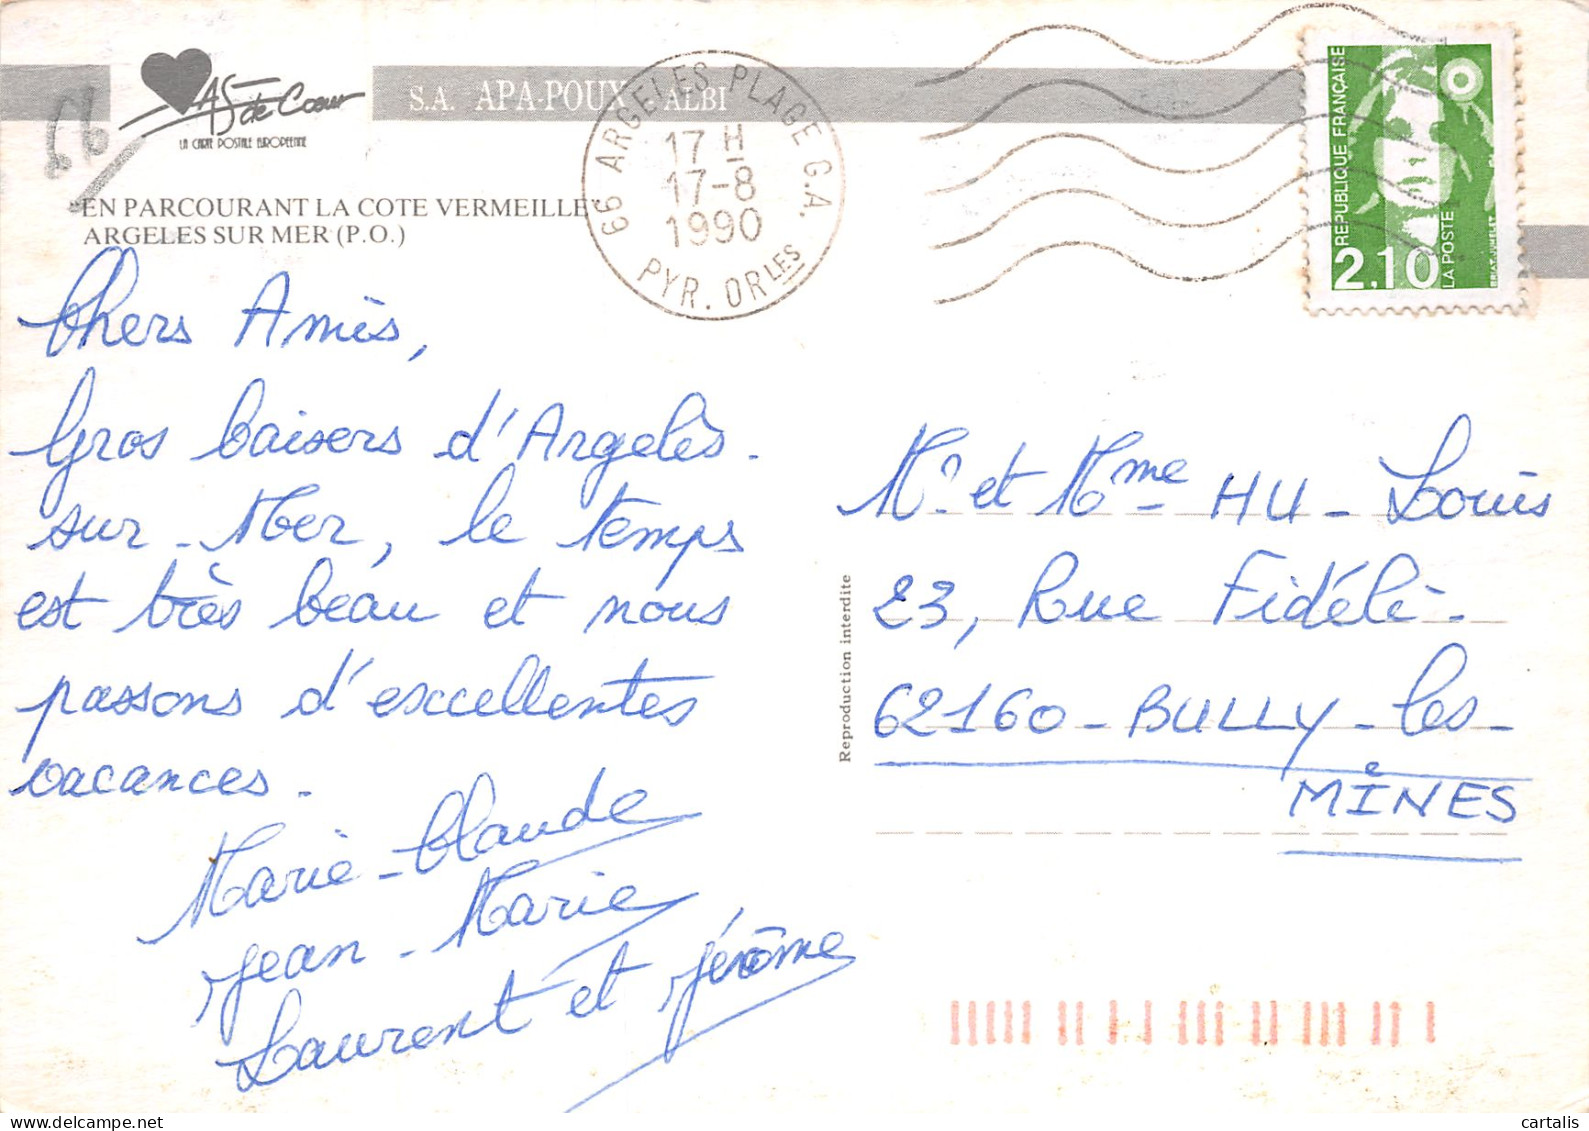 66
AS de Cœur
LA CARTE POSTALE EUROPEENNE
S.A. APA-POUX ALBI
EN PARCOURANT LA COTE VERMEILLE
ARGELES SUR MER (P.O.)
66 ARGELES PLAGE G.A.
17 H
17-8
1990
PYR. ORLES
REPUBLIQUE FRANÇAISE
2,10
LA POSTE
BRIAT-JUMELET
Chers Amis,
Gros baisers d'Argelès-
sur-Mer, le temps
est très beau et nous
passons d'excellentes
vacances.
Marie-Claude
Jean-Marie
Laurent et Jérôme
Reproduction interdite
Mr et Mme HU-Louis
23, Rue Fidélé.
62160-BULLY-les-
MINES
cartalis